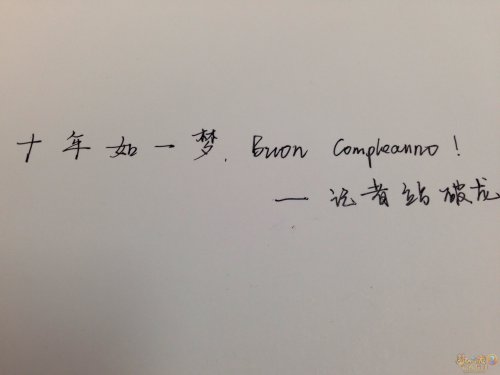 十年如一梦, Buon Compleanno!
— 记者站破龙